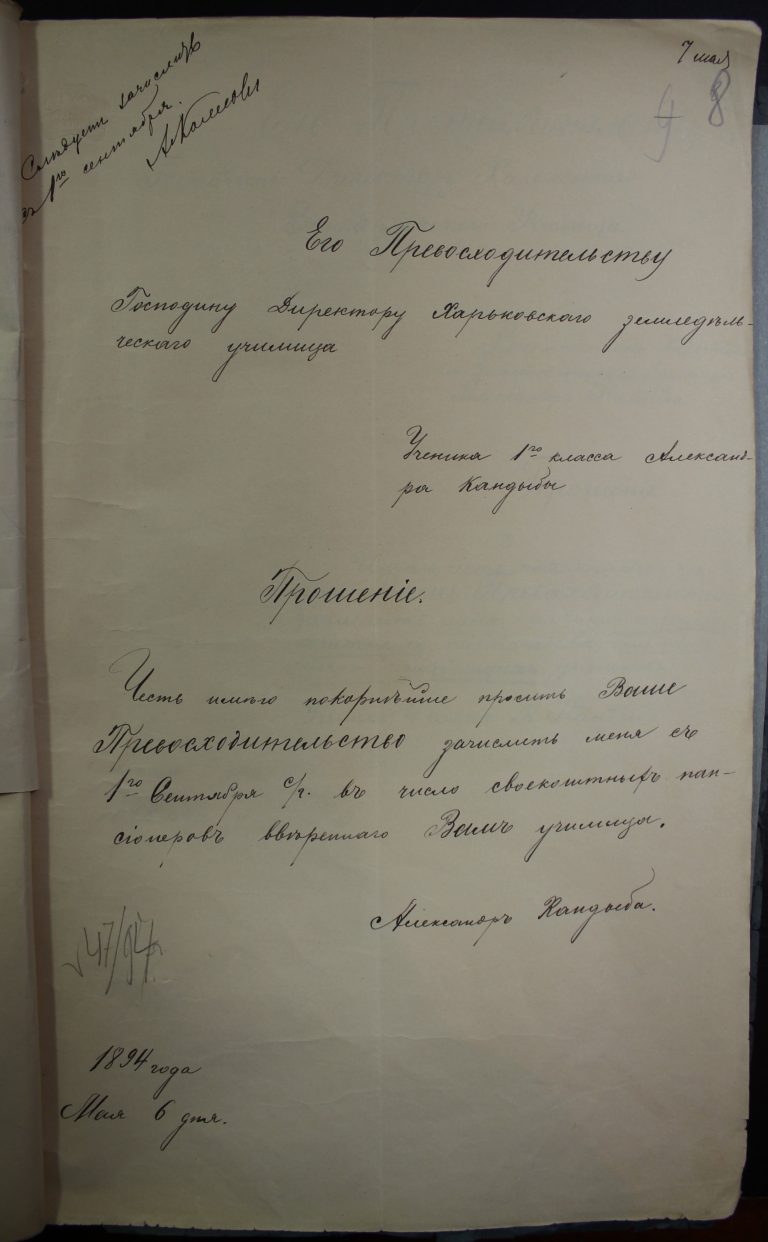 7 мая
8
Слѣдуетъ зачислить
съ 1го сентября.
Его Превосходительству
Господину Директору Харьковскаго земледѣль-
ческаго училища
Ученика 1го класса Александ-
ра Кандыбы
Прошеніе.
Честь имѣю покорнѣйше просить Ваше
Превосходительство зачислить меня съ
1го Сентября с/г. въ число своекоштныхъ пан-
сіонеровъ ввѣреннаго Вамъ училища.
Александръ Кандыба.
47/94
1894 года
Мая 6 дня.